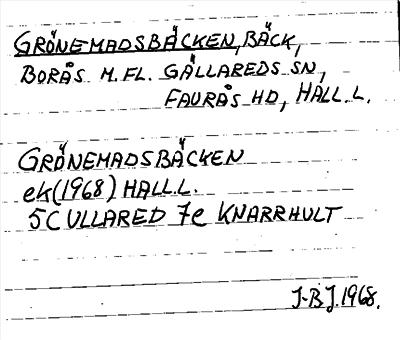 GRÖNEMADSBÄCKEN, BÄCK,
BORÅS M.FL. GÄLLAREDS SN,
FAURÅS HD, HALL.L.
GRÖNEMADSBÄCKEN
ek(1968) HALL.L.
5C ULLARED 7e KNARRHULT
J-BJ.1968.